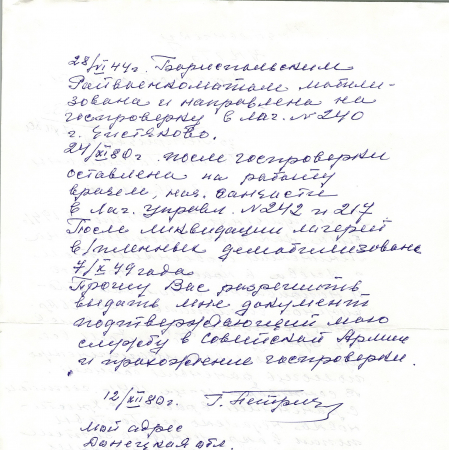 28/VI 44г. Бориспольским
Райвоенкоматом мобили-
зована и направлена на
госпроверку в лаг. N 240
г. Чистяково.
24/XI 80г. после госпроверки
оставлена на работу
врачем, нач. санчасти
в лаг. управл. N 242 и 217.
После ликвидации лагерей
в/пленных демобилизована
7/X 49 года
Прошу Вас разрешить
выдать мне документ
подтверждающий мою
службу в Советской Армии
и прохождение госпроверки.
12/XII 80г.
Мой адрес
Донецкая обл.